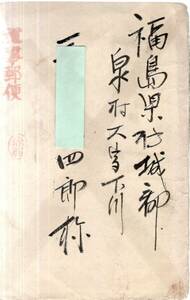 福島県石城郡
泉村大字下川
四郎様
軍事郵便